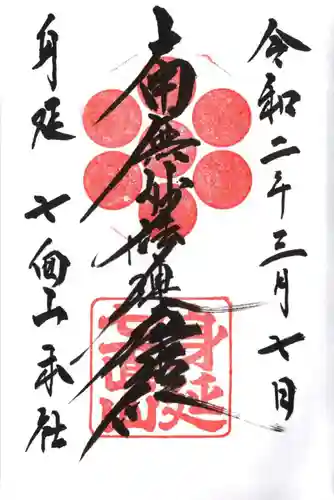 令和二年三月七日
南無妙法蓮華経
身延
七面山本社
身延
七面山